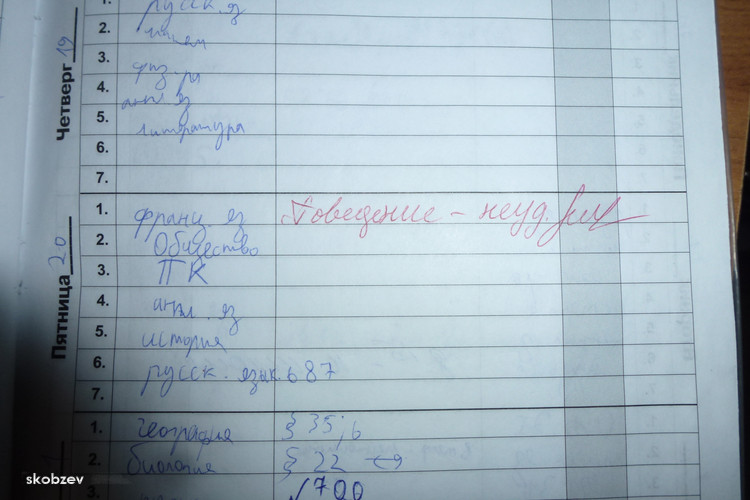 1. русск. яз
2.
3. физ-ра
4. англ яз
5. литература
6.
7.
Четверг 19
1. франц. яз Поведение - неуд.
2. Общество
3. ПК
4. англ. яз
5. история
6. русск. язык. 687
7.
Пятница 20
1. география § 35; 6
2. биология § 22
3. 700
skobzev